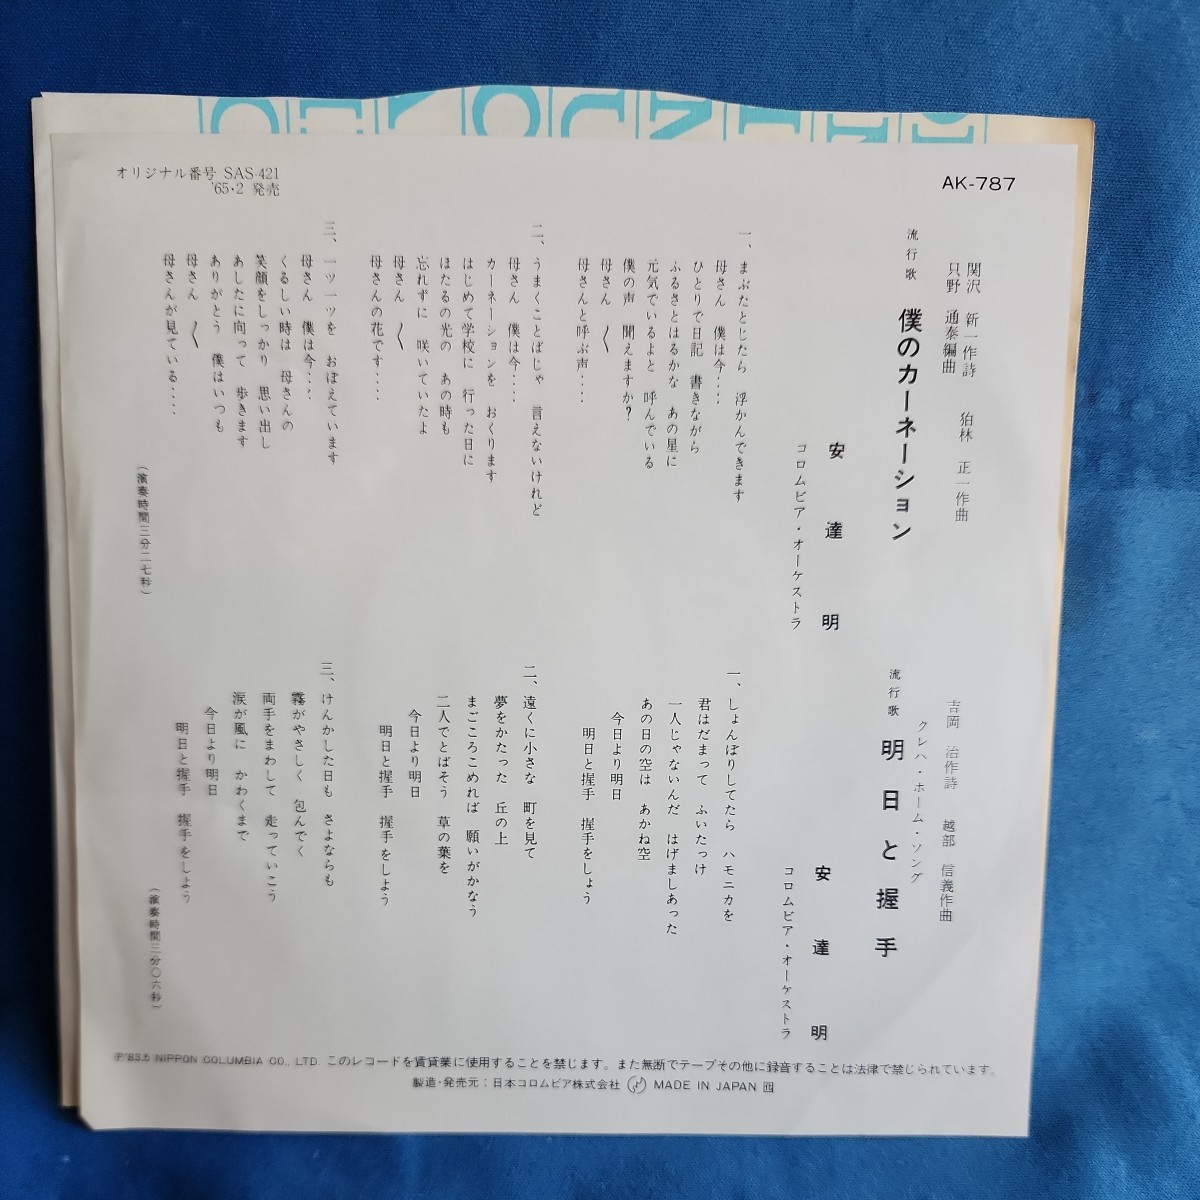 オリジナル番号 SAS-421
'65・2 発売
AK-787
関沢 新一作詩 狛林 正一作曲
只野 通泰編曲
流行歌 僕のカーネーション
安達明
コロムビア・オーケストラ
一、まぶたとじたら 浮かんできます
母さん 僕は今‥‥
ひとりで日記 書きながら
ふるさとはるかな あの星に
元気でいるよと 呼んでいる
僕の声 聞えますか?
母さん 〱
母さんと呼ぶ声‥‥
二、うまくことばじゃ 言えないけれど
母さん 僕は今‥‥
カーネーションを おくります
はじめて学校に 行った日に
ほたるの光の あの時も
忘れずに 咲いていたよ
母さん 〱
母さんの花です‥‥
三、一ツ一ツを おぼえています
母さん 僕は今‥‥
くるしい時は 母さんの
笑顔をしっかり 思い出し
あしたに向って 歩きます
ありがとう 僕はいつも
母さん 〱
母さんが見ている‥‥
(演奏時間三分二七秒)
吉岡 治作詩 越部 信義作曲
クレハ・ホーム・ソング
流行歌 明日と握手
安達明
コロムビア・オーケストラ
一、しょんぼりしてたら ハモニカを
君はだまって ふいたっけ
一人じゃないんだ はげましあった
あの日の空は あかね空
今日より明日
明日と握手 握手をしよう
二、遠くに小さな 町を見て
夢をかたった 丘の上
まごころこめれば 願いがかなう
二人でとばそう 草の葉を
今日より明日
明日と握手 握手をしよう
三、けんかした日も さよならも
霧がやさしく 包んでく
両手をまわして 走っていこう
涙が風に かわくまで
今日より明日
明日と握手 握手をしよう
(演奏時間三分〇六秒)
Ⓟ'83.5 NIPPON COLUMBIA CO., LTD. このレコードを賃貸業に使用することを禁じます。また無断でテープその他に録音することは法律で禁じられています。
製造・発売元:日本コロムビア株式会社 MADE IN JAPAN